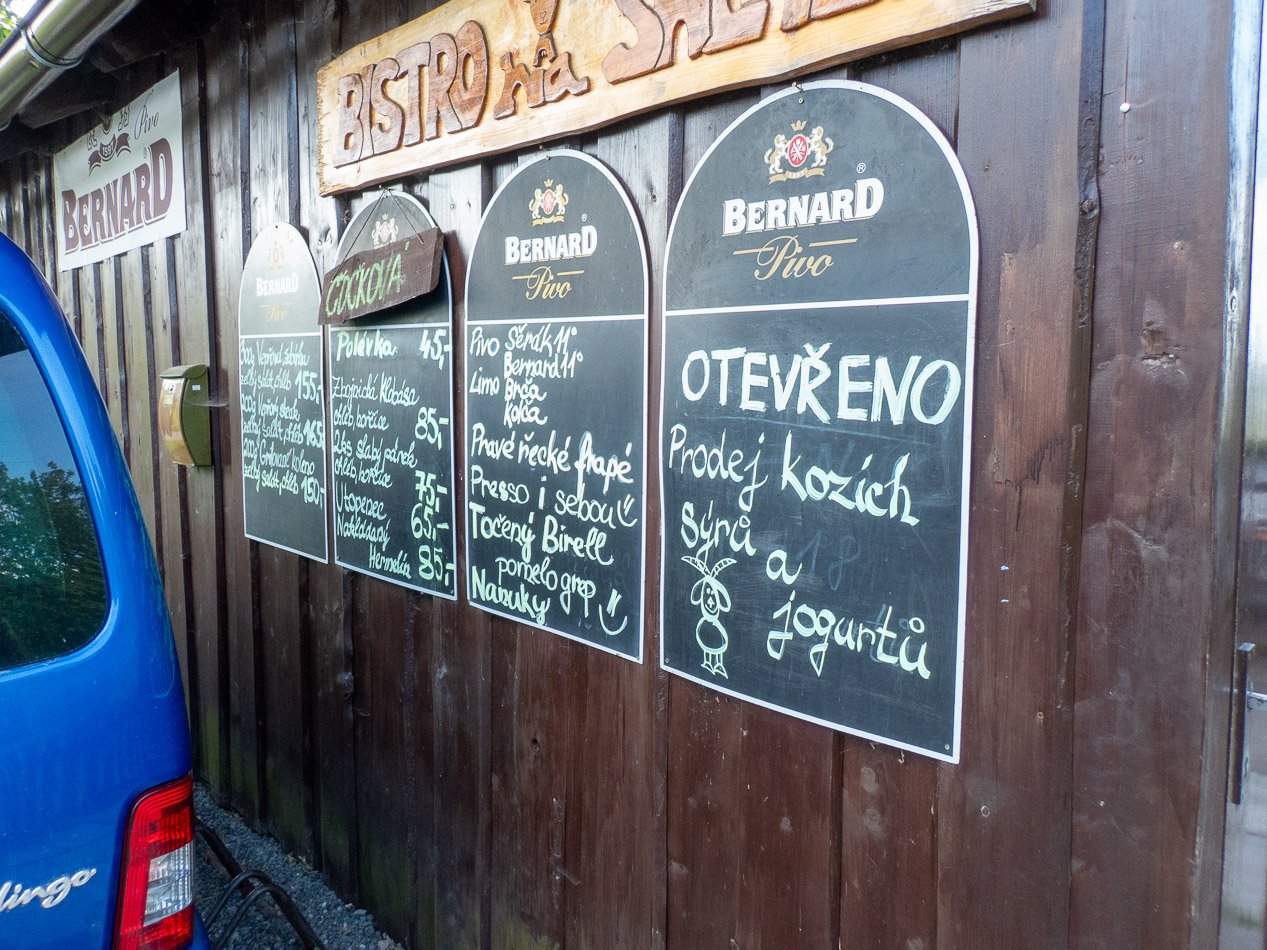 BISTRO Na
Pivo
BERNARD
BERNARD
Pivo
300g Vepřová žebírka
zelný salát, chléb 155,-
200g Vepřový steak
zelný salát, chléb 165,-
Grilované koleno
zelný salát, chléb 150,-
ČOČKOVÁ
Polévka 45,-
Zbojnická klobása
chléb, hořčice 85,-
2ks slabý párek
chléb, hořčice 75,-
Utopenec 65,-
Nakládaný
Hermelín 85,-
BERNARD ®
Pivo
Pivo Šerák 11°
Bernard 11°
Limo Brča
Kolča
Pravé řecké frapé
Presso i sebou
Točený Birell
pomelo grep
Nanuky
BERNARD ®
Pivo
OTEVŘENO
Prodej kozích
sýrů a
jogurtů
18
lingo